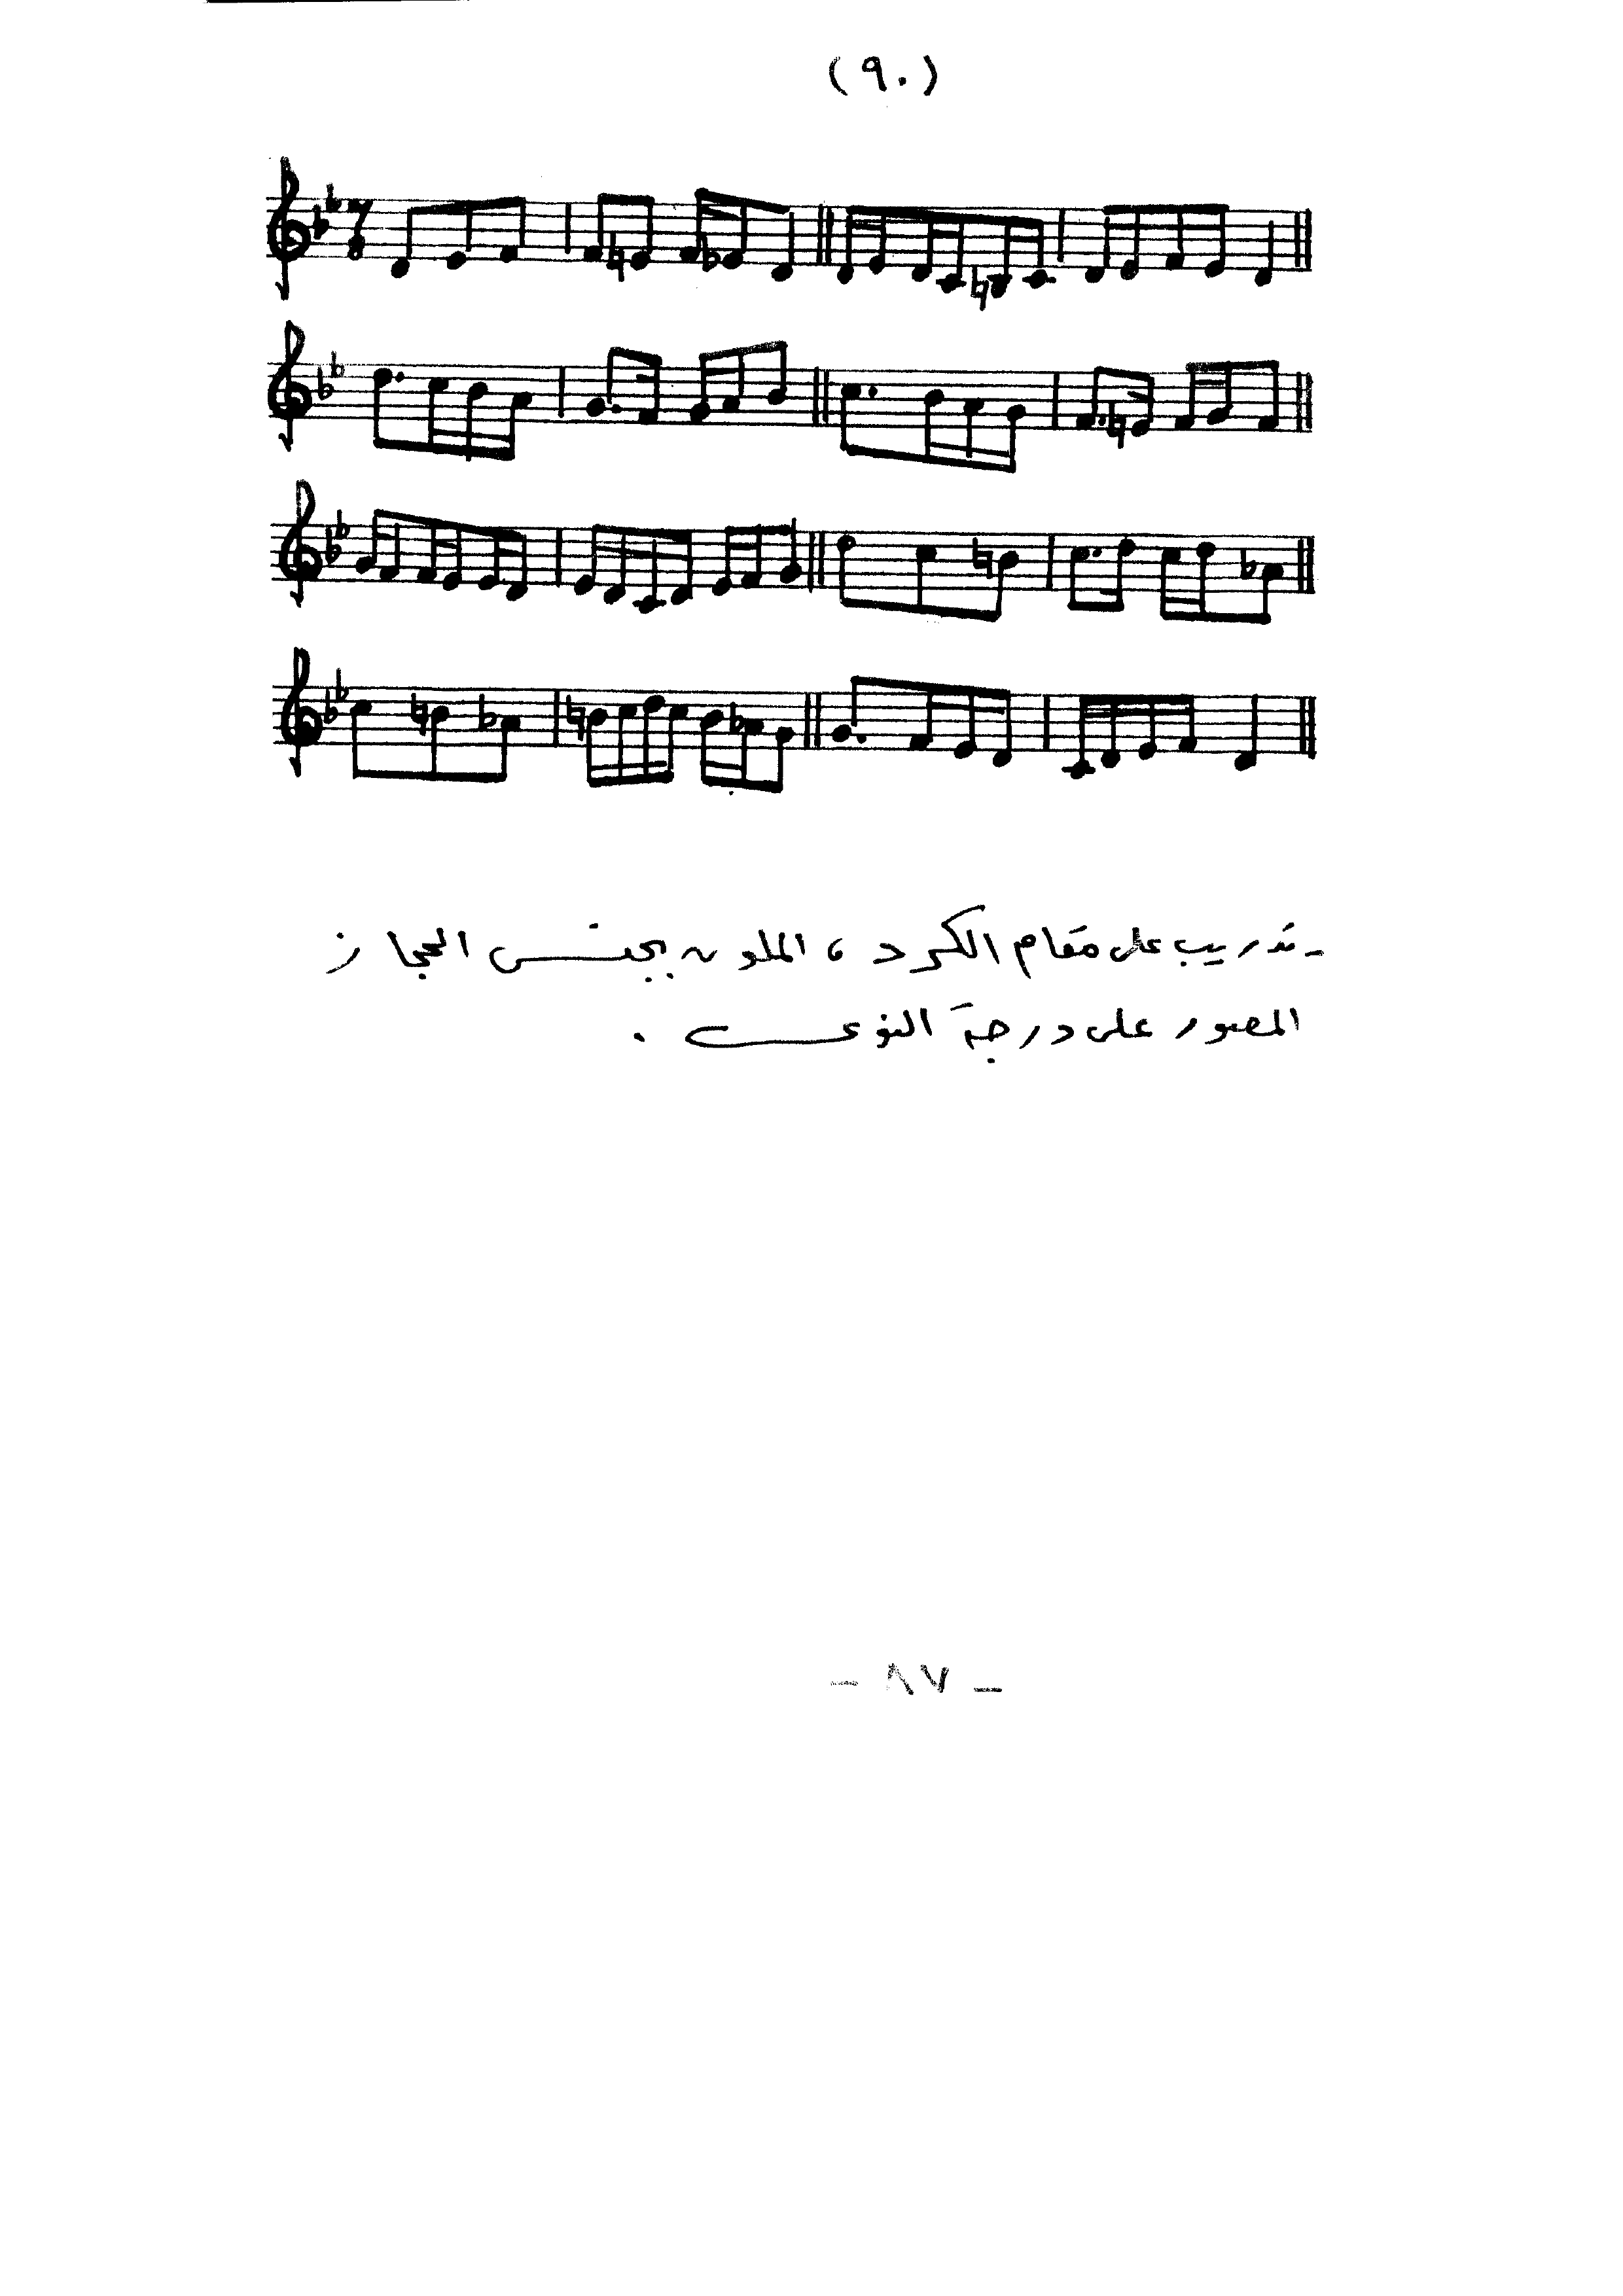 (٩٠)
7
8
- تدريب على مقام الكرد، الملون بجنس الحجاز
المصور على درجة النوى .
- ٨٧ -